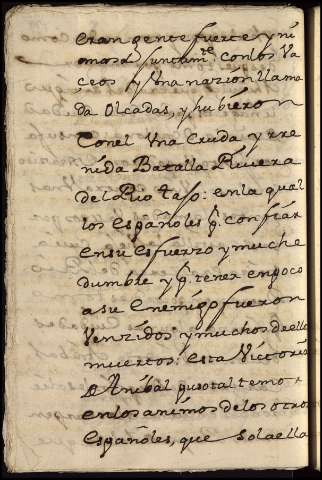 eran gente fuerte y ni
mosa Juntamte. con los Va
ceos y Una nazion llama
da Olcadas, y hubieron
Con el Una Cruda y rre
nida Batalla Riuera
del Rio tajo: en la qual
los españoles q. confiar
en su esfuerzo y muche
dumbre y q. tener en poco
a su Enemigo fueron
Venzidos y muchos de ello
muertos: esta Victoria
D Anibal puso tal temor
en los animos de los otros
españoles, que Sola ella